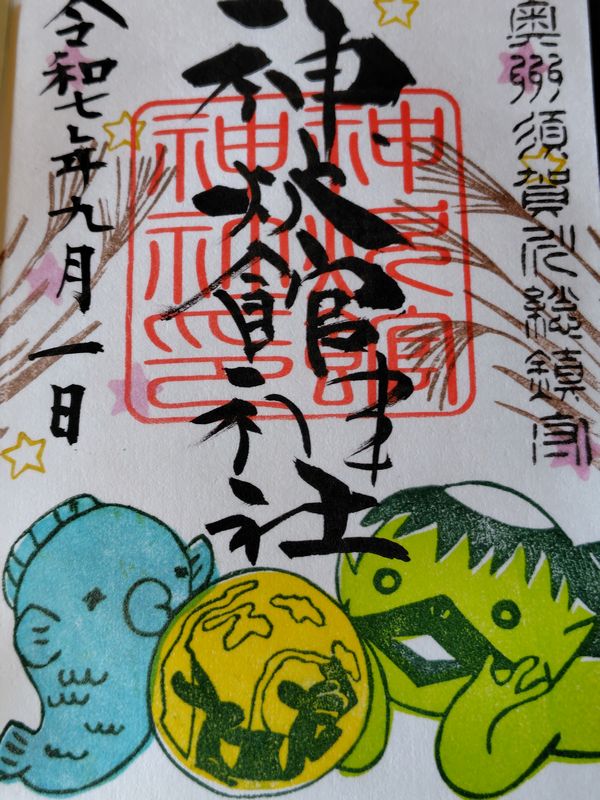 奥州須賀川総鎮守
神炊館神社
神炊館
神社印
令和七年九月一日